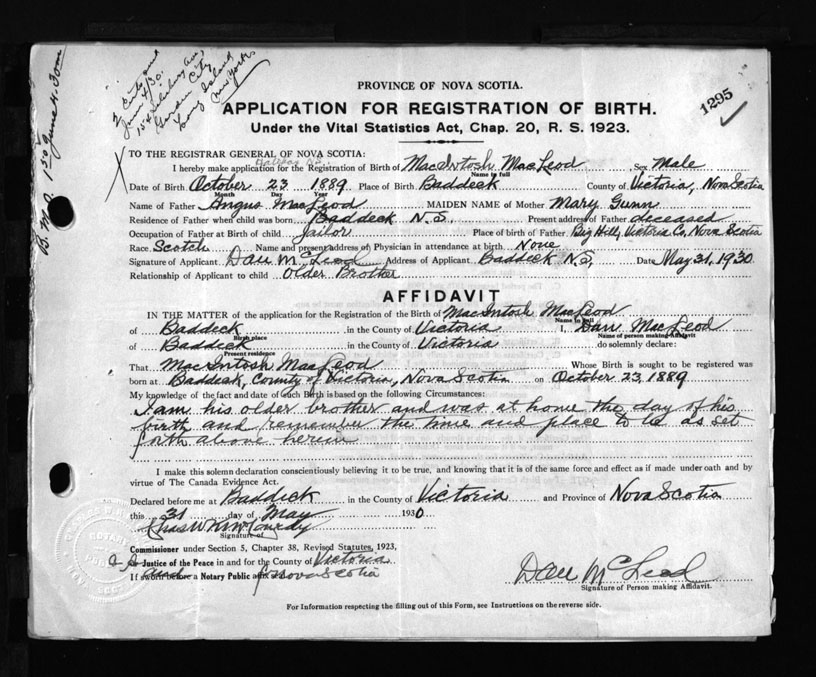 2 Certs sent
June 4/30.
Garden City
Long Island
New York
PROVINCE OF NOVA SCOTIA.
1295
APPLICATION FOR REGISTRATION OF BIRTH.
Under the Vital Statistics Act, Chap. 20, R. S. 1923.
TO THE REGISTRAR GENERAL OF NOVA SCOTIA:
Halifax N.S.
I hereby make application for the Registration of Birth of MacIntosh MacLeod Sex Male
Name in full
Date of Birth October 23 1889 Place of Birth Baddeck County of Victoria, Nova Scotia
Month Day Year
Name of Father Angus MacLeod MAIDEN NAME of Mother Mary Gunn
Residence of Father when child was born Baddeck N.S. Present address of Father deceased
Occupation of Father at Birth of child Jailor Place of birth of Father Big Hill, Victoria Co, Nova Scotia
Race Scotch Name and present address of Physician in attendance at birth None
Signature of Applicant Dan McLeod Address of Applicant Baddeck N.S, Date May 31, 1930
Relationship of Applicant to child Older Brother
AFFIDAVIT
IN THE MATTER of the application for the Registration of the Birth of MacIntosh MacLeod
Name in full
of Baddeck in the County of Victoria I, Dan MacLeod
Birth place Name of person making Affidavit
of Baddeck in the County of Victoria do solemnly declare:
Present residence
That MacIntosh MacLeod Whose Birth is sought to be registered was
born at Baddeck, County of Victoria, Nova Scotia on October 23, 1889
My knowledge of the fact and date of such Birth is based on the following Circumstances:
I am his older brother and was at home the day of his
birth and remember the time and place to be as set
forth above herein
I make this solemn declaration conscientiously believing it to be true, and knowing that it is of the same force and effect as if made under oath and by
virtue of The Canada Evidence Act.
Declared before me at Baddeck in the County of Victoria and Province of Nova Scotia
this 31 day of May 1930
Signature of
Commissioner under Section 5, Chapter 38, Revised Statutes, 1923,
or Justice of the Peace in and for the County of Victoria
If sworn before a Notary Public Nova Scotia
Dan McLeod
Signature of Person making Affidavit.
For Information respecting the filling out of this Form, see Instructions on the reverse side.